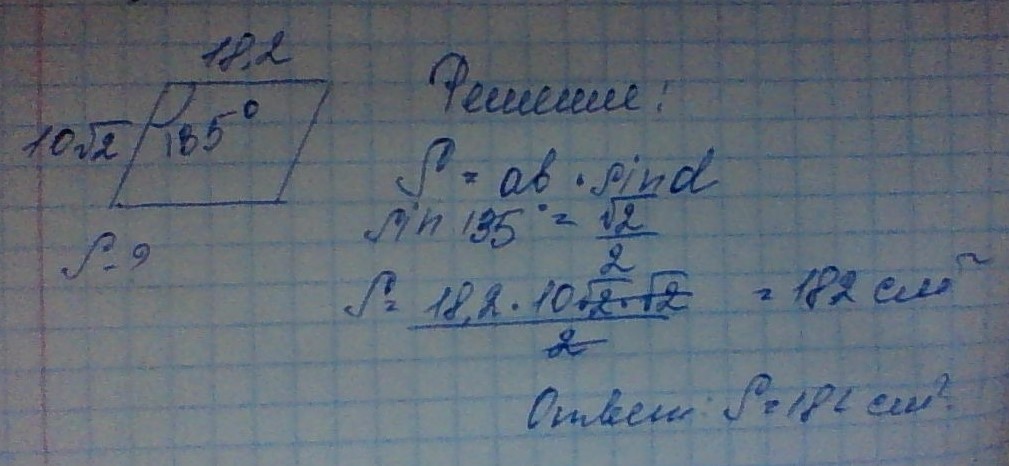 18,2
10√2
135°
S - ?
Решение:
S = ab · sin α
sin 135° = √2/2
S = 18,2 · 10√2 · √2 / 2 = 182 см²
Ответ: S = 182 см².